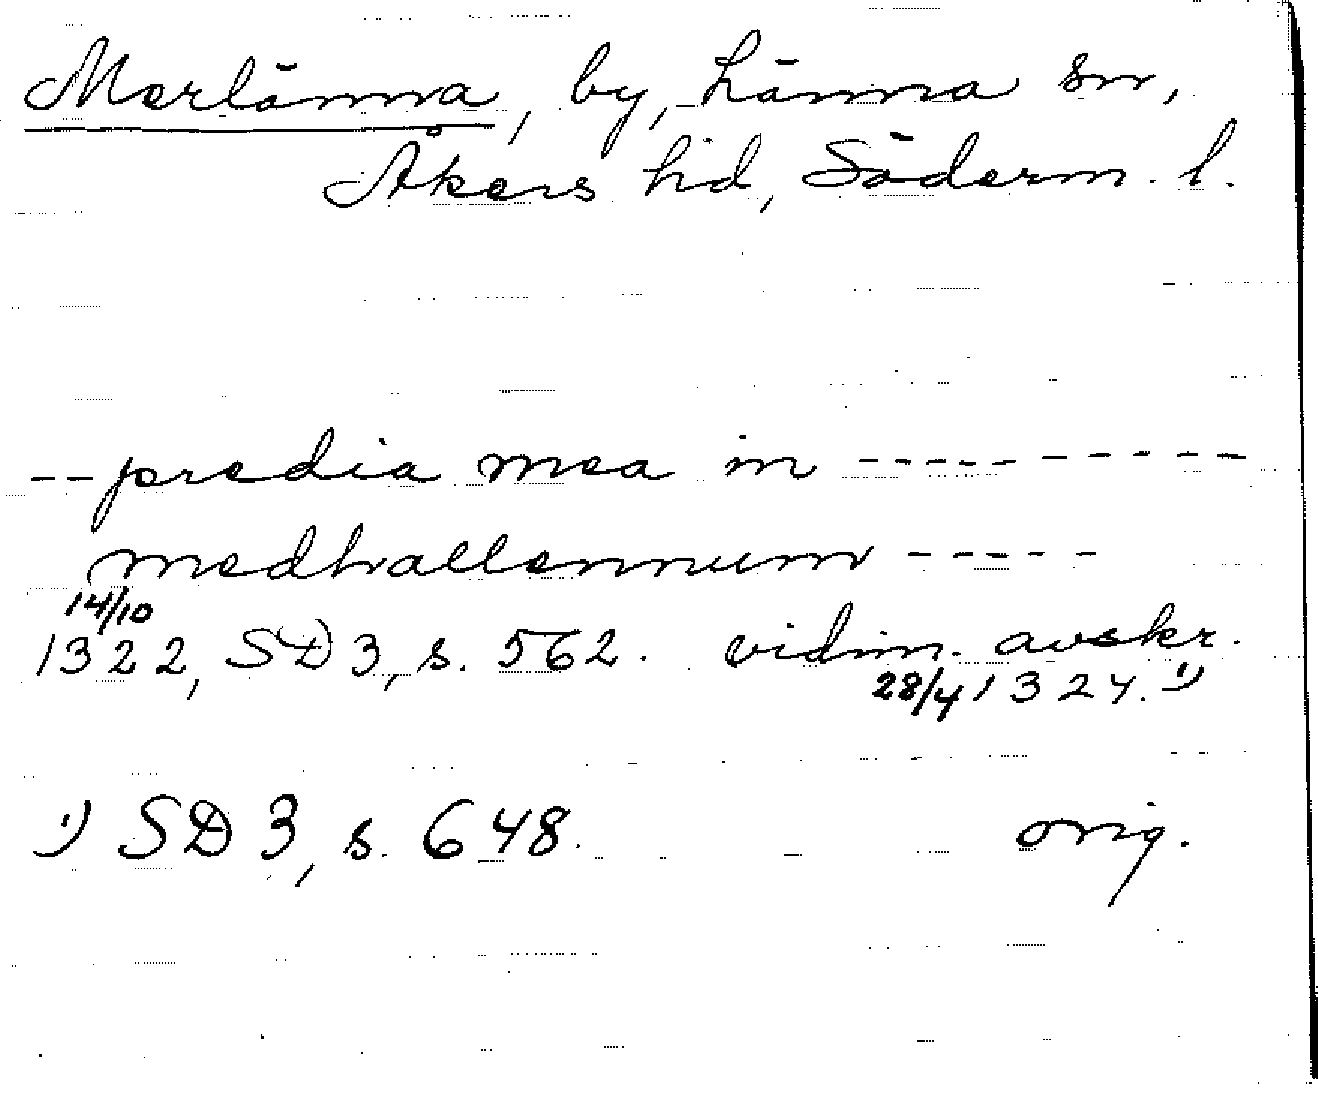 Merlänna, by, Länna sn,
Åkers hd, Söderm. l.
-- predia mea in - - - - - - - - - -
medhallennum - - - - -
14/10
1322, SD 3, s. 562. vidim. avskr.
28/4 1324. 1)
1) SD 3, s. 648. orig.